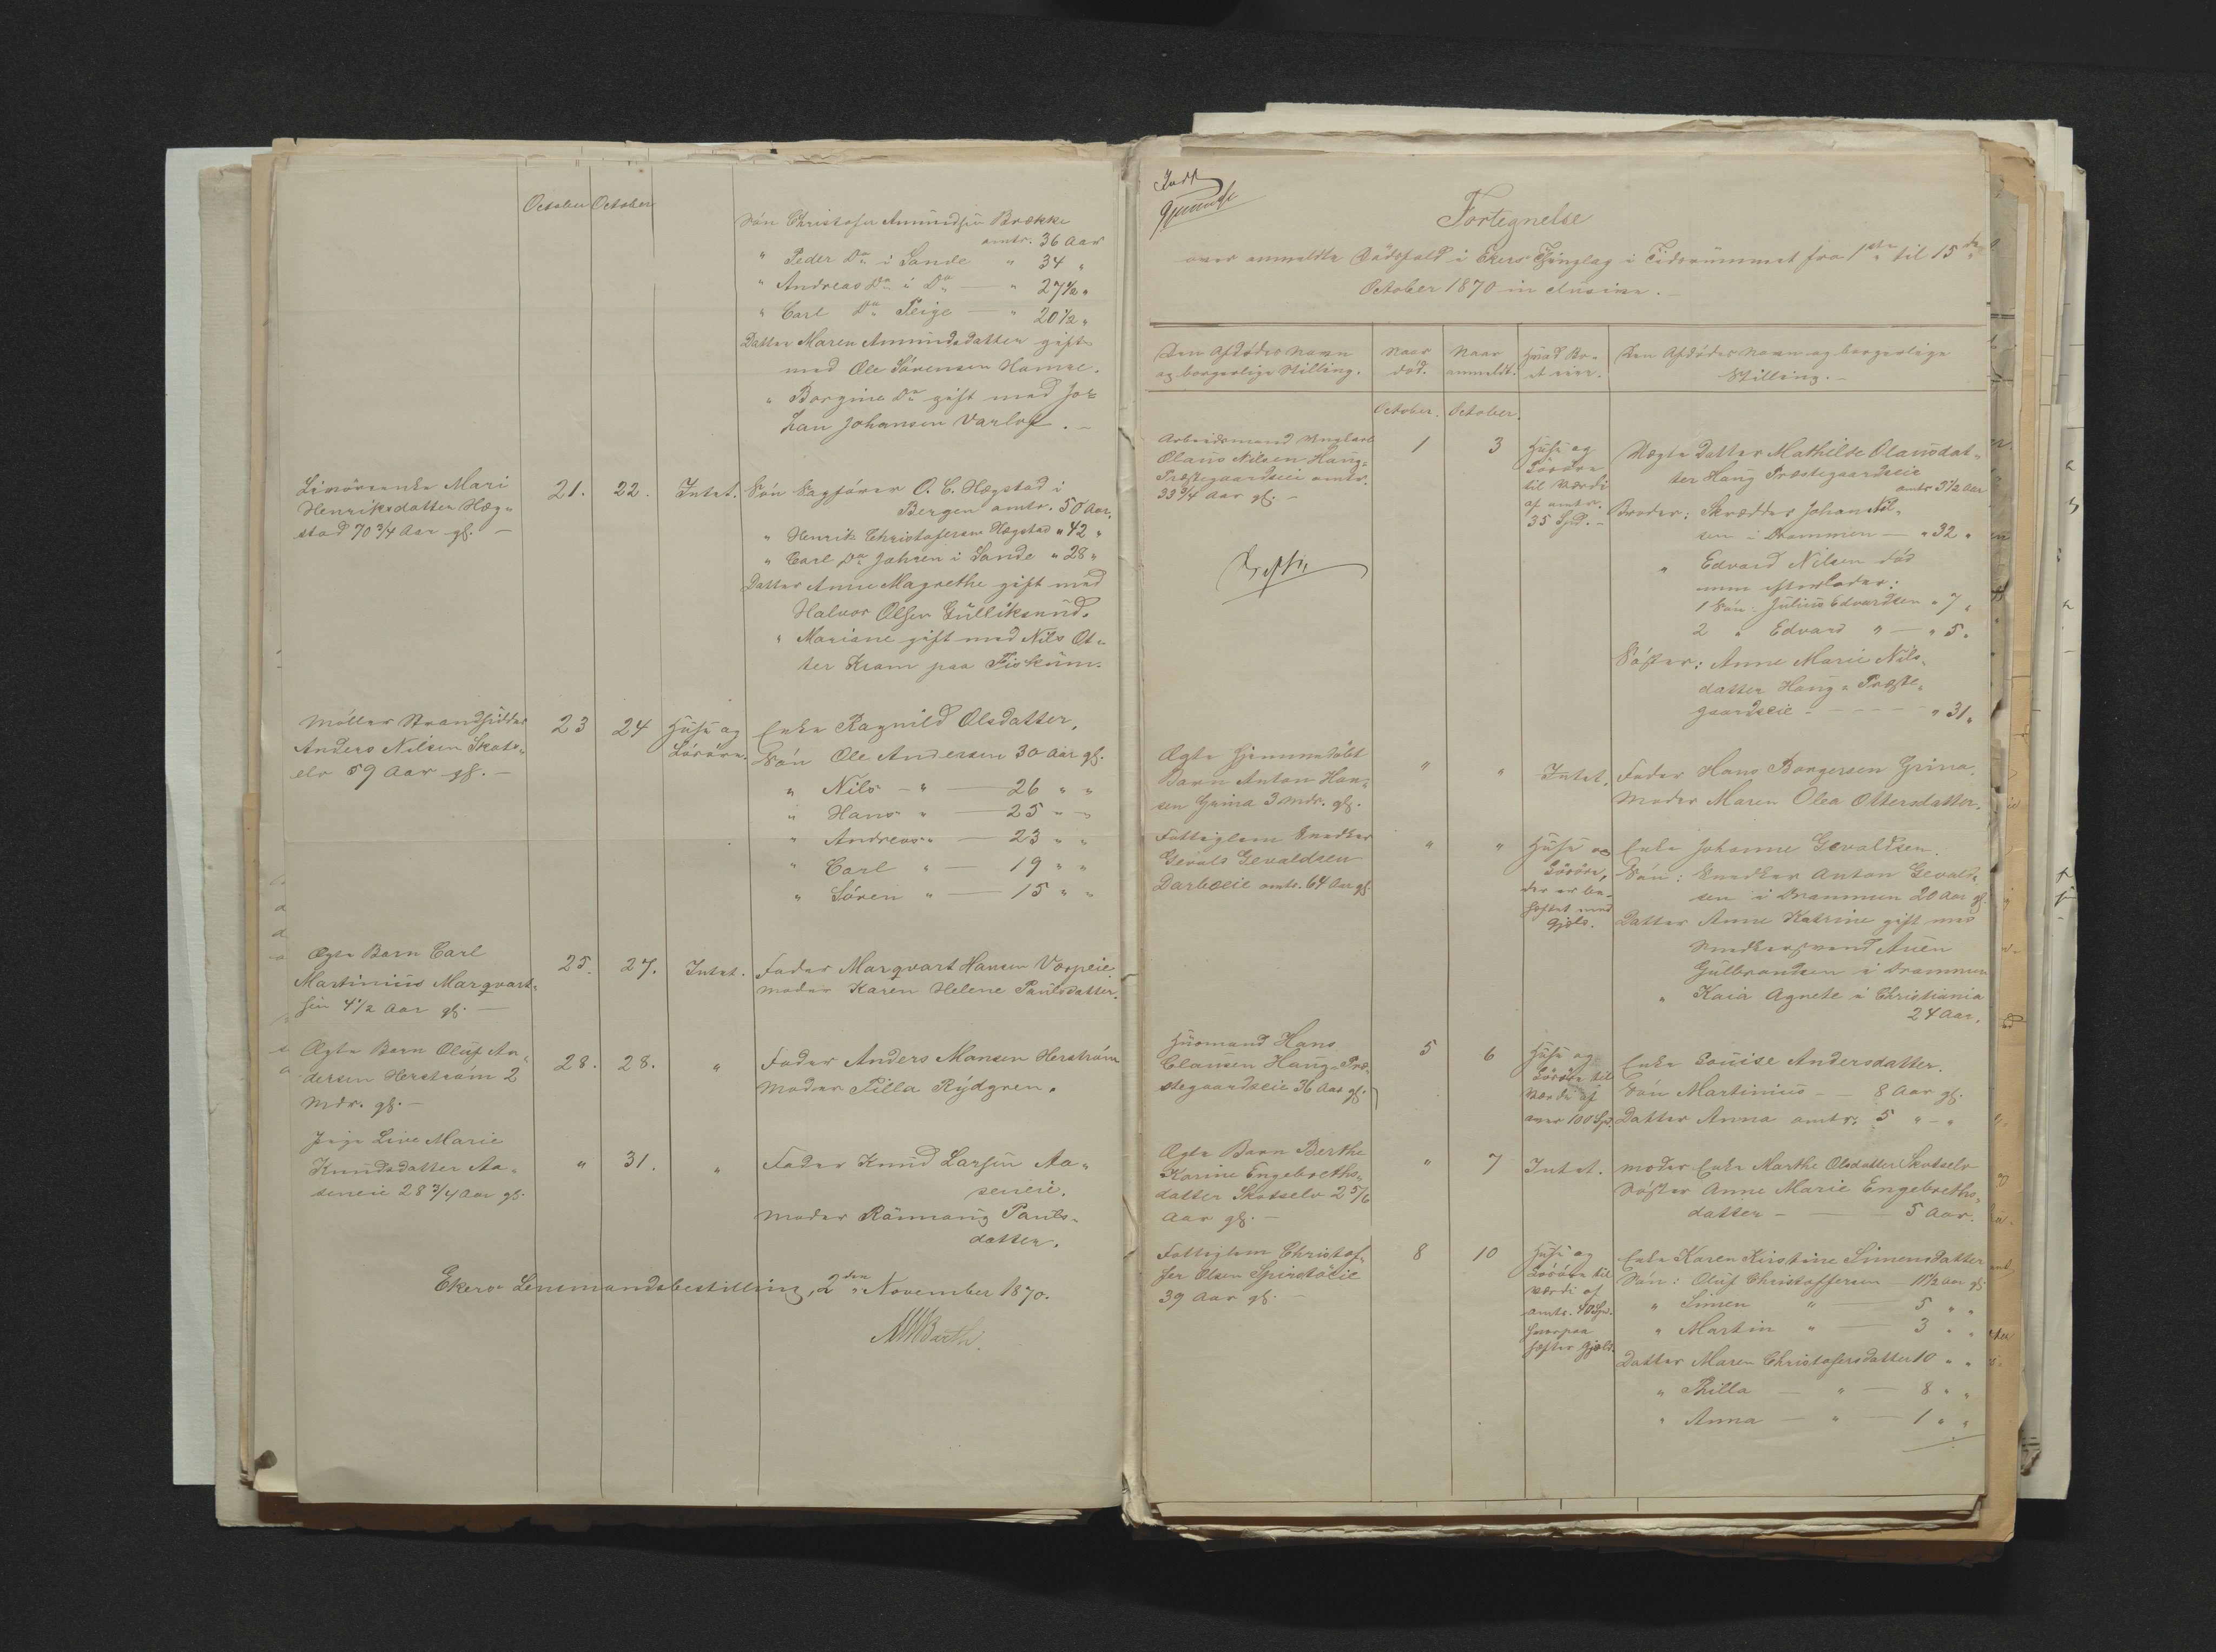 October October
Søn Christofer Amundsen Brække
omtr. 36 Aar
" Peder Do i Sande " 34 "
" Andreas Do i Do — " 27½ "
" Carl Do Teige — " 20½ "
Datter Maren Amundsdatter gift
med Ole Sørensen Hamre.
" Borgine Do gift med Jo-
han Johansen Varlo
Mari
Henriksdatter Hæg-
stad 70 3/4 Aar gl. —
21. 22. Intet.
Søn Sagfører O. C. Hægstad i
Bergen omtr. 50 Aar.
" Henrik Christofersen Hægstad " 42 "
" Carl Do Jahren i Sande " 28 "
Datter Anne Magrethe gift med
Halvor Olsen Gulliksrud.
" Mariane gift med Nils Ot-
ter Kram paa Fiskum.
Møller Strandsidder
Anders Nilsen Skots-
elv 59 Aar gl. —
23 24 Huse og
Løsøre.
Enke Ragnild Olsdatter.
Søn Ole Andersen 30 Aar gl.
" Nils — " — 26 " "
" Hans " — 25 " "
" Andreas " — 23 " "
" Carl " — 19 " "
" Søren " — 15 " "
Ægte Barn Carl
Martinius Marqvart-
sen 4½ Aar gl. —
25. 27. Intet.
Fader Marqvart Hansen Vorpeie.
Moder Karen Helene Paulsdatter.
Ægte Barn Oluf An-
dersen Herström 2
Mdr. gl. —
28. 28. "
Fader Anders Monsen Herström
Moder Pilla Rydgren.
Pige Live Marie
Knudsdatter Aa-
seneie 28 3/4 Aar gl.
" 31. "
Fader Knud Larsen Aa-
seneie.
Moder Rannaug Pauls-
datter.
Ekers Lensmandsbestilling, 2den November 1870.
Barth.
Fortegnelse
over anmeldte Dødsfald i Ekers Thinglag i Tidsrummet fra 1ste til 15de
October 1870 inclusive. —
Den Afdødes Navn
og borgerlige Stilling.
Naar
død.
Naar
anmeldt.
Hvad Bo-
et eier.
Den Afdødes Navn og borgerlige
Stilling. —
October. October.
Arbeidsmand Ungkarl
Olaus Nilsen Haug-
Præstegaardseie omtr.
33 3/4 Aar gl. —
1 3
Huse og
Løsøre
til Værdi
af omtr.
35 Spd. —
Uægte Datter Mathilde Olausdat-
ter Haug Præstegaardseie
omtr. 3½ Aar
Broder: Skrædder Johan Nil-
sen i Drammen — " 32 "
" Edvard Nilsen død
men efterlader:
1 Søn: Julius Edvardsen " 7 "
2 " Edvard " — " 5 "
Søster: Anne Marie Nils-
datter Haug-Præste-
gaardseie — " 31 "
Ægte hjemmedøbt
Barn Anton Han-
sen Grina 3 Mdr. gl.
" " Intet.
Fader Hans Borgersen Grina.
Moder Maren Olea Ottersdatter.
Fattiglem Snedker
Gevald Gevaldsen
Darbo eie omtr. 64 Aar gl.
" " Huse og
Løsøre,
der er be-
heftet med
Gjæld.
Enke Johanne Gevaldsen.
Søn: Snedker Anton Gevald-
sen i Drammen 20 Aar gl.
Datter Anne Katrine gift med
Snedkersvend Auen
Gulbrandsen i Drammen
" Kaia Agnete i Christiania
24 Aar.
Husmand Hans
Clausen Haug-Præ-
stegaardseie 36 Aar gl.
5 6
Huse og
Løsøre til
Værdi af
over 100 Spd.
Enke Louise Andersdatter.
Søn Martinius — 8 Aar gl.
Datter Anna omtr. 5 " — "
Ægte Barn Berthe
Karine Engebreths-
datter Skotselv 2 5/6
Aar gl. —
" 7 Intet.
Moder Enke Marthe Olsdatter Skotselv
Søster Anne Marie Engebreths-
datter — 5 Aar.
Fattiglem Christof-
fer Olsen
39 Aar gl. —
8 10
Huse og
Løsøre til
Værdi af
omtr. 40 Spd.
hvorpaa
hefter Gjæld.
Enke Karen Kirstine Simensdatter
Søn: Oluf Christoffersen — 11½ Aar gl.
" Simen " — 5 " "
" Martin " — 3 " "
Datter Maren Christofersdatter 10 " "
" Thilla — " — 8 " "
" Anna — " — 1 " "